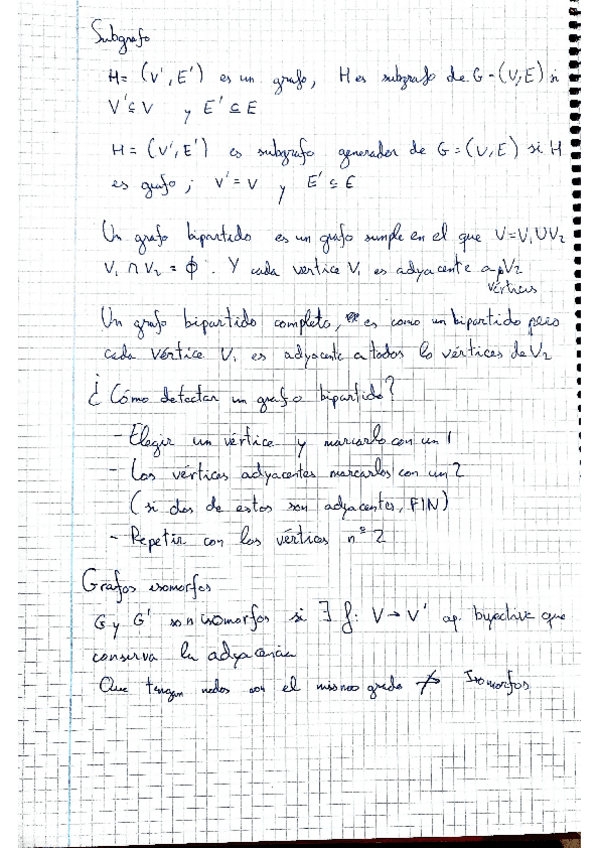 Subgrafo
H= (V', E') es un grafo, H es subgrafo de G=(V,E) si
V'⊆V y E'⊆E
H= (V', E') es subgrafo generador de G=(V,E) si H
es grafo; V'=V y E'⊆E
Un grafo bipartido es un grafo simple en el que V=V₁UV₂
V₁ ∩ V₂ = Φ. Y cada vertice V₁ es adyacente a V₂
vértices
Un grafo bipartido completo, es como un bipartido pero
cada vértice V₁ es adyacente a todos lo vértices de V₂
¿Cómo detectar un grafo bipartido?
- Elegir un vértice y marcarlo con un 1
- Los vértices adyacentes marcarlos con un 2
(si dos de estos son adyacentes, FIN)
- Repetir con los vértices nº 2
Grafos isomorfos
G y G' son isomorfos si ∃ f: V→V' ap. biyectiva que
conserva la adyacencia
Que tengan nodos con el mismo grado ⇏ Isomorfos